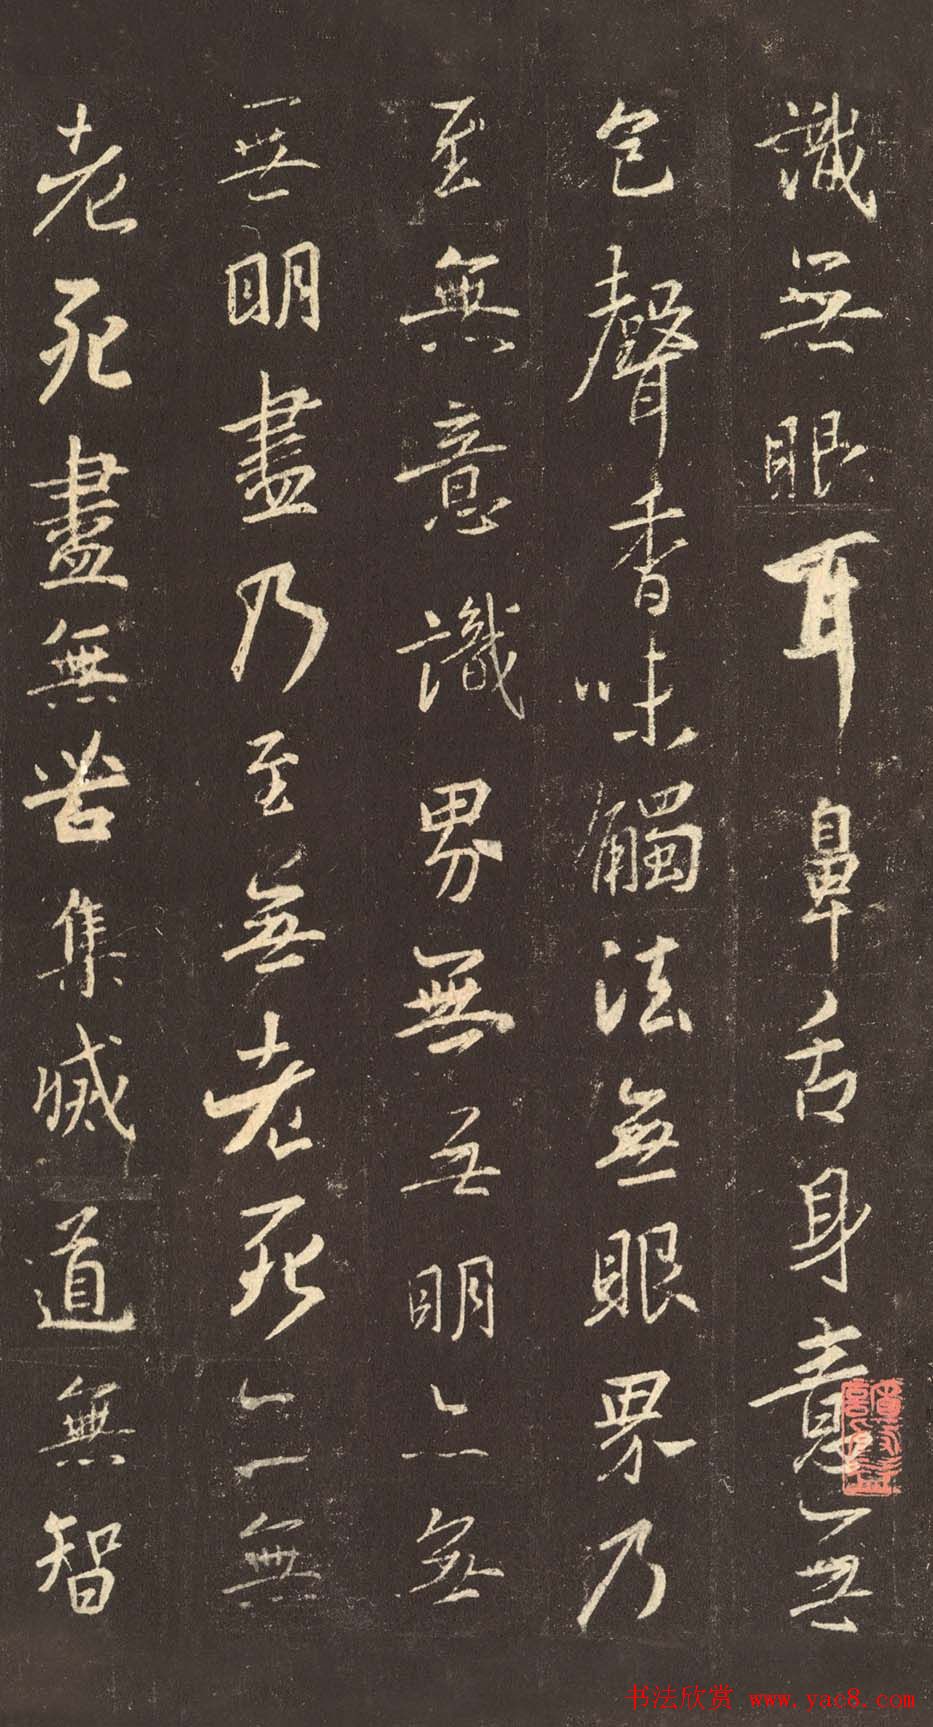 識無眼耳鼻舌身意無
色聲香味觸法無眼界乃
至無意識界無無明亦無
無明盡乃至無老死亦無
老死盡無苦集滅道無智
书法欣赏 www.yac8.com